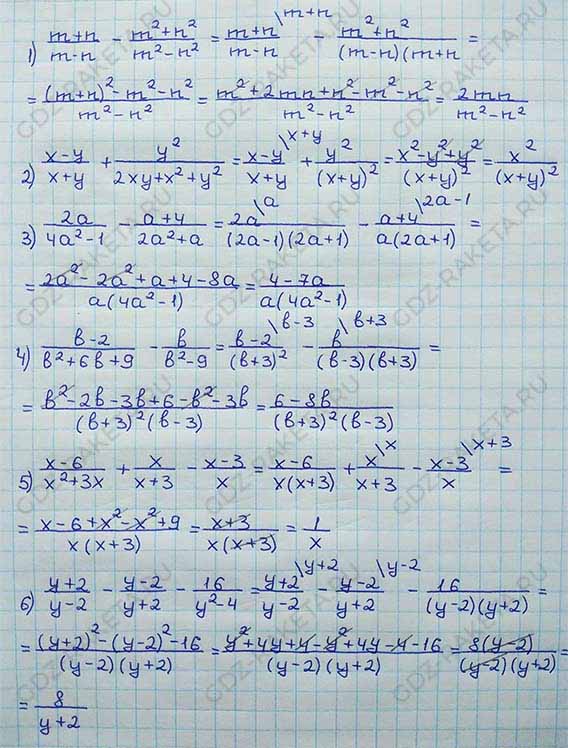 1) (m+n)/(m-n) - (m²+n²)/(m²-n²) = (m+n)\m+n/(m-n) - (m²+n²)/((m-n)(m+n) =
= ((m+n)²-m²-n²)/(m²-n²) = (m²+2mn+n²-m²-n²)/(m²-n²) = 2mn/(m²-n²)
2) (x-y)/(x+y) + y²/(2xy+x²+y²) = (x-y)\x+y/(x+y) + y²/(x+y)² = (x²-y²+y²)/(x+y)² = x²/(x+y)²
3) 2a/(4a²-1) - (a+4)/(2a²+a) = 2a\a/((2a-1)(2a+1)) - (a+4)\2a-1/(a(2a+1)) =
= (2a²-2a²+a+4-8a)/(a(4a²-1)) = (4-7a)/(a(4a²-1))
4) (в-2)/(в²+6в+9) - в/(в²-9) = (в-2)\в-3/(в+3)² - в\в+3/((в-3)(в+3)) =
= (в²-2в-3в+6-в²-3в)/((в+3)²(в-3)) = (6-8в)/((в+3)²(в-3))
5) (x-6)/(x²+3x) + x/(x+3) - (x-3)/x = (x-6)/(x(x+3)) + x\x/(x+3) - (x-3)\x+3/x =
= (x-6+x²-x²+9)/(x(x+3)) = (x+3)/(x(x+3)) = 1/x
6) (y+2)/(y-2) - (y-2)/(y+2) - 16/(y²-4) = (y+2)\y+2/(y-2) - (y-2)\y-2/(y+2) - 16/((y-2)(y+2)) =
= ((y+2)²-(y-2)²-16)/((y-2)(y+2)) = (y²+4y+4-y²+4y-4-16)/((y-2)(y+2)) = 8(y-2)/((y-2)(y+2)) =
= 8/(y+2)
GDZ-RAKETA.RU